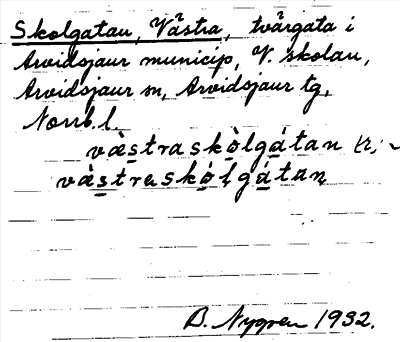 Skolgatan, Västra, tvärgata i
Arvidsjaur municip, V. skolan,
Arvidsjaur sn, Arvidsjaur tg,
Norrb. l.
væ̀straskòlgátan
vàstraskòlgátan
B. Nygren 1932.